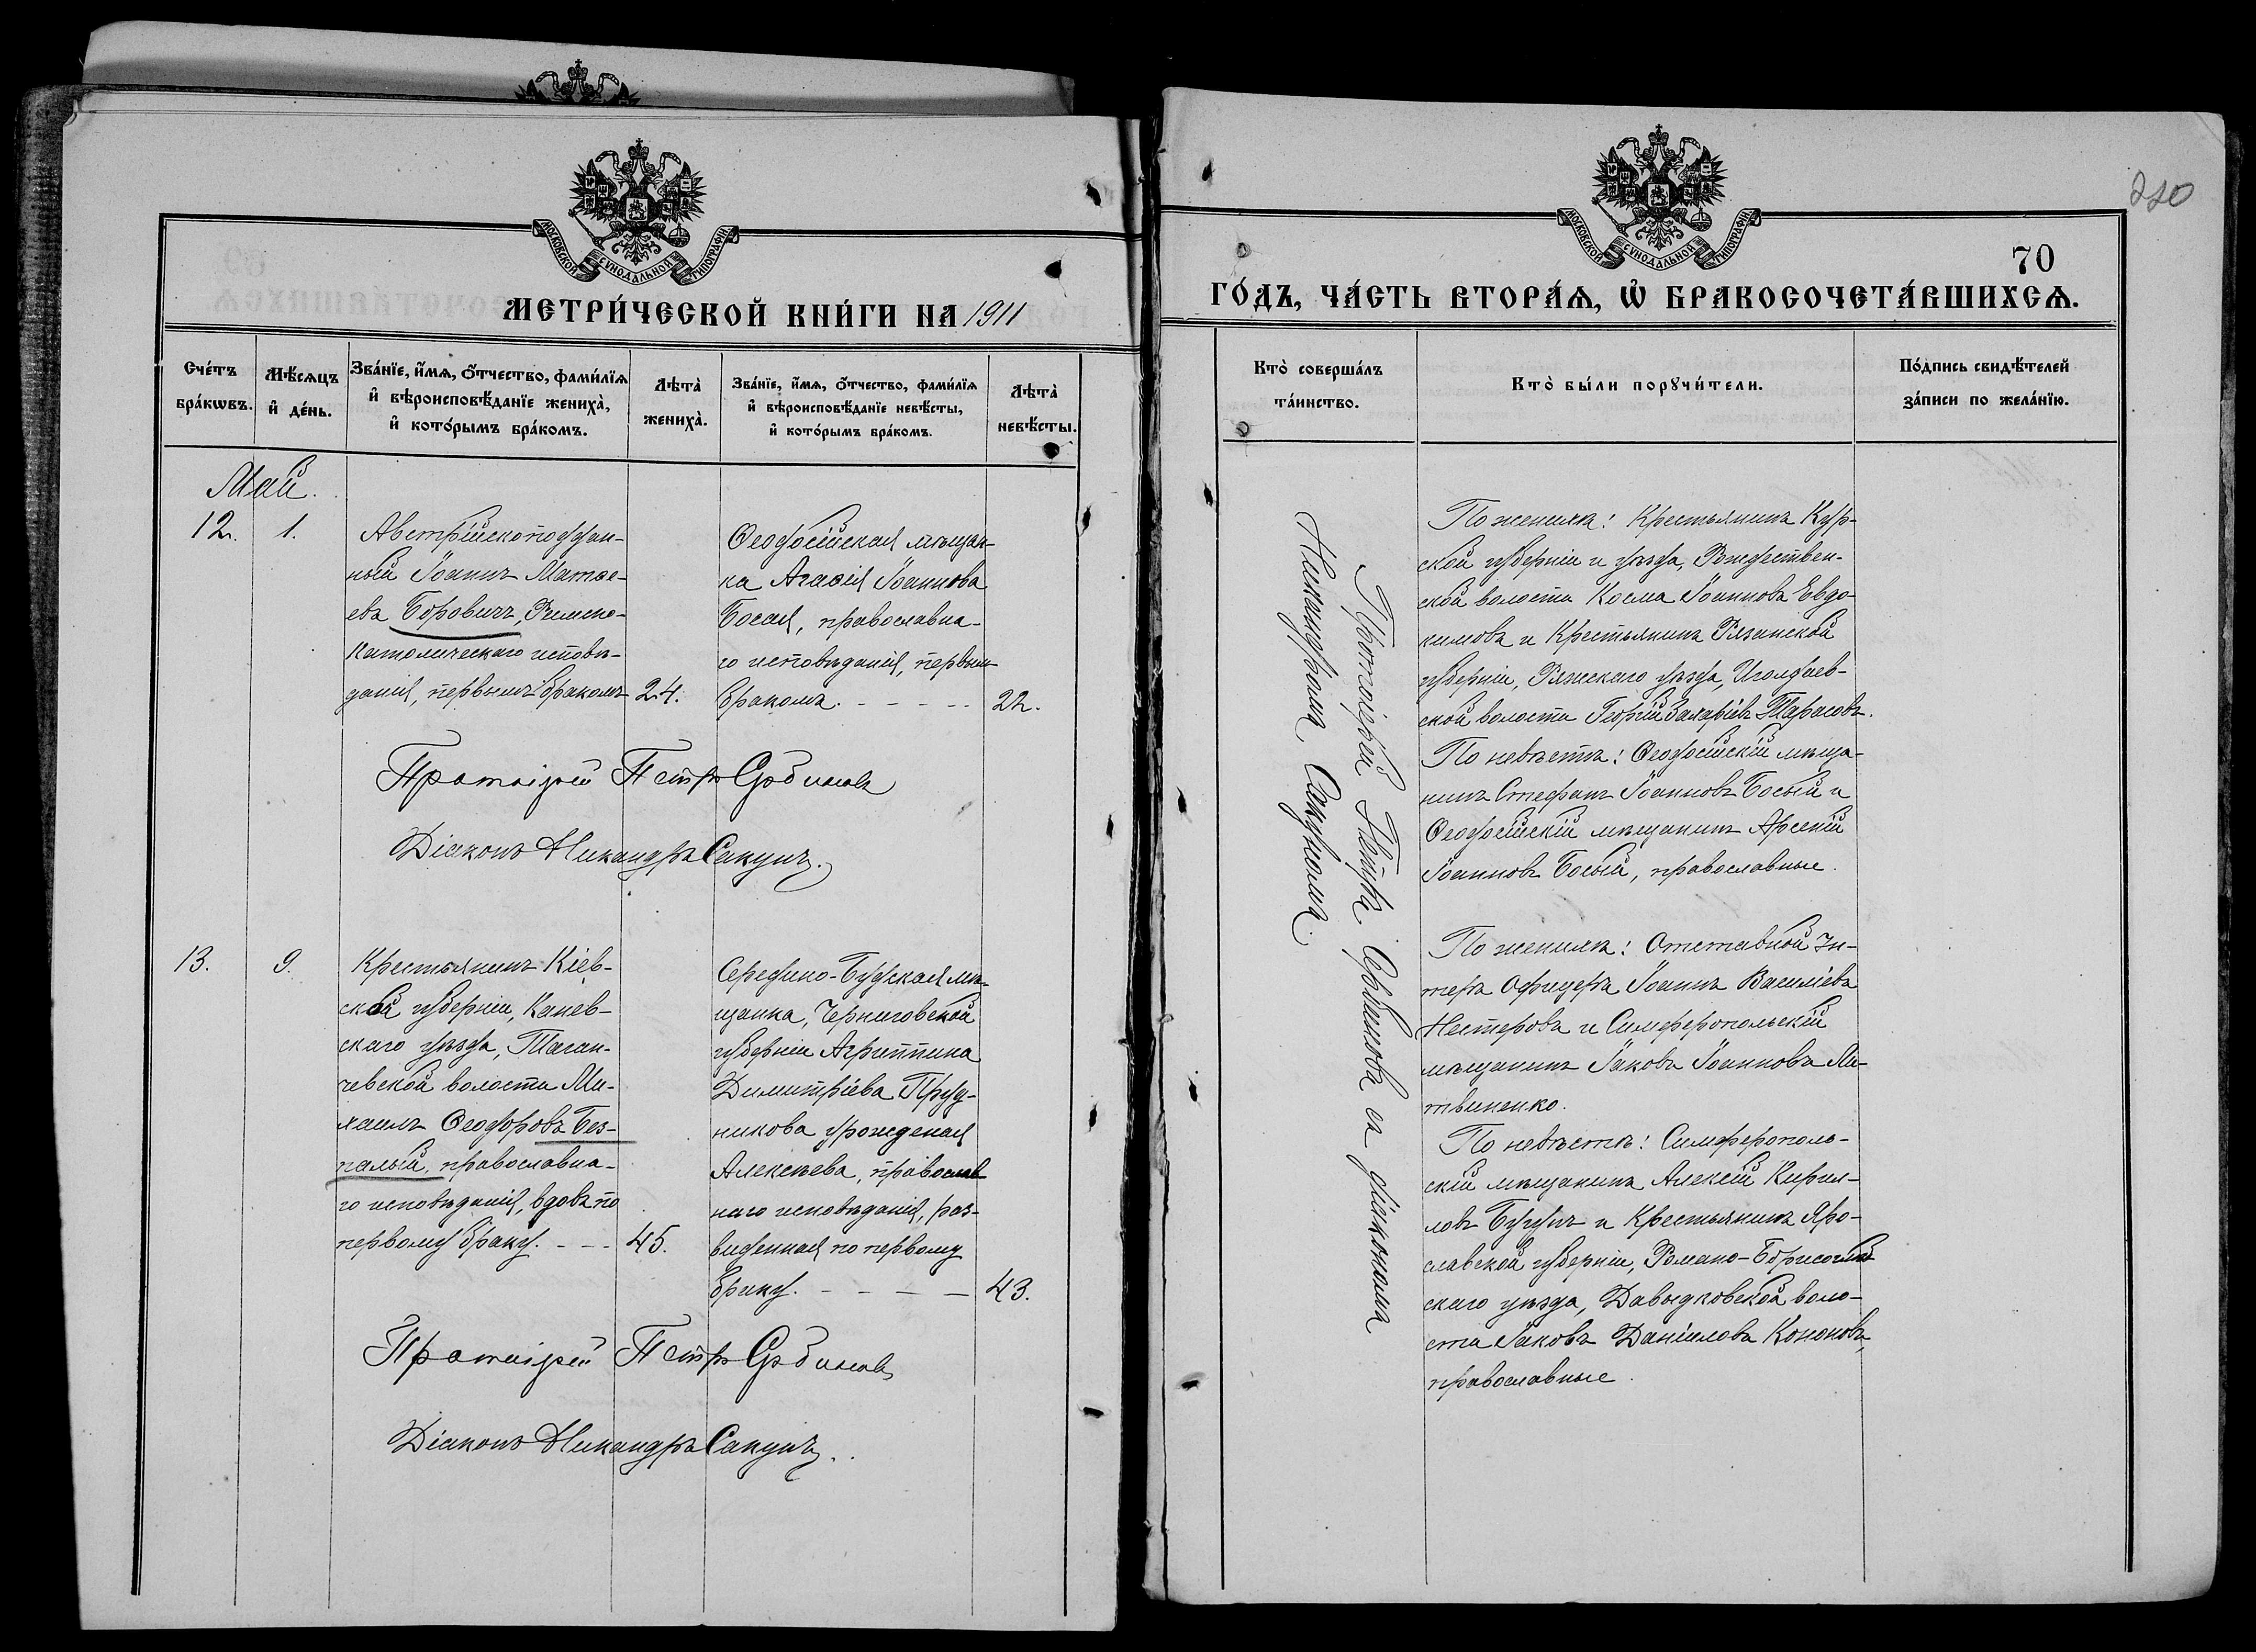 МОСКОВСКОЙ СѴНОДАЛЬНОЙ ТИПОГРАФІИ
МЕТРИ́ЧЕСКОЙ КНИ́ГИ НА 1911
Сче́тъ бра́кѡвъ.
Мѣ́сѧцъ и҆ де́нь.
Зва́нїе, и҆́мѧ, ѻ҆́тчество, фами́лїѧ
и҆ вѣроисповѣ́данїе жениха̀,
и҆ кото́рымъ бра́комъ.
Лѣта̀ жениха̀.
Зва́нїе, и҆́мѧ, ѻ҆́тчество, фами́лїѧ
и҆ вѣроисповѣ́данїе невѣ́сты,
и҆ кото́рымъ бра́комъ.
Лѣта̀ невѣ́сты.
Май.
12.
1.
Австрійскоподдан-
ный Іоаннъ Матѳе-
евъ Боровичъ, Римско-
Католическаго исповѣ-
данія, первымъ бракомъ
24.
Ѳеодосійская мѣщан-
ка Агаѳія Іоаннова
Босая, православна-
го исповѣданія, первымъ
бракомъ.
22.
Протоіерей Петръ Сербиновъ
Діаконъ Никандръ Сакунъ.
13.
9.
Крестьянинъ Кіев-
ской губерніи, Канев-
скаго уѣзда, Таган-
чевской волости Ми-
хаилъ Ѳеодоровъ Без-
палый, православна-
го исповѣданія, вдовъ по
первому браку.
45.
Середино-Будская мѣ-
щанка, Черниговской
губерніи Агриппина
Димитріева Пруд-
никова урожденая
Алексѣева, православ-
наго исповѣданія, раз-
веденная по первому
браку.
43.
Протоіерей Петръ Сербиновъ
Діаконъ Никандръ Сакунъ.
220
МОСКОВСКОЙ СѴНОДАЛЬНОЙ ТИПОГРАФІИ
70
ГО́ДЪ, ЧА́СТЬ ВТОРА́Ѧ, Ѡ҆ БРАКОСОЧЕТА́ВШИХСѦ.
Кто̀ соверша́лъ
та́инство.
Кто̀ бы́ли порꙋчи́тели.
По́дпись свидѣ́телей
за́писи по жела́нїю.
Протоіерей Петръ Сербиновъ съ діакономъ
Никандромъ Сакуномъ.
По женихѣ: Крестьянинъ Кур-
ской губерніи и уѣзда, Рождествен-
ской волости Косма Іоанновъ Евдо-
кимовъ и Крестьянинъ Рязанской
губерніи, Ряжскаго уѣзда, Иголдаев-
ской волости Георгій Захаріевъ Тарасовъ.
По невѣстѣ: Ѳеодосійскій мѣща-
нинъ Стефанъ Іоанновъ Босый и
Ѳеодосійскій мѣщанинъ Арсеній
Іоанновъ Босый, православные.
По женихѣ: Отставной Ун-
теръ Офицеръ Іоаннъ Василіевъ
Нестеровъ и Симферопольскій
мѣщанинъ Іаковъ Іоанновъ Ли-
твиненко.
По невѣстѣ: Симферополь-
скій мѣщанинъ Алексій Кирил-
ловъ и Крестьянинъ Яро-
славской губерніи, Романо-Борисоглѣб-
скаго уѣзда, Давыдковской воло-
сти Іаковъ Даніиловъ Кононовъ,
православные.